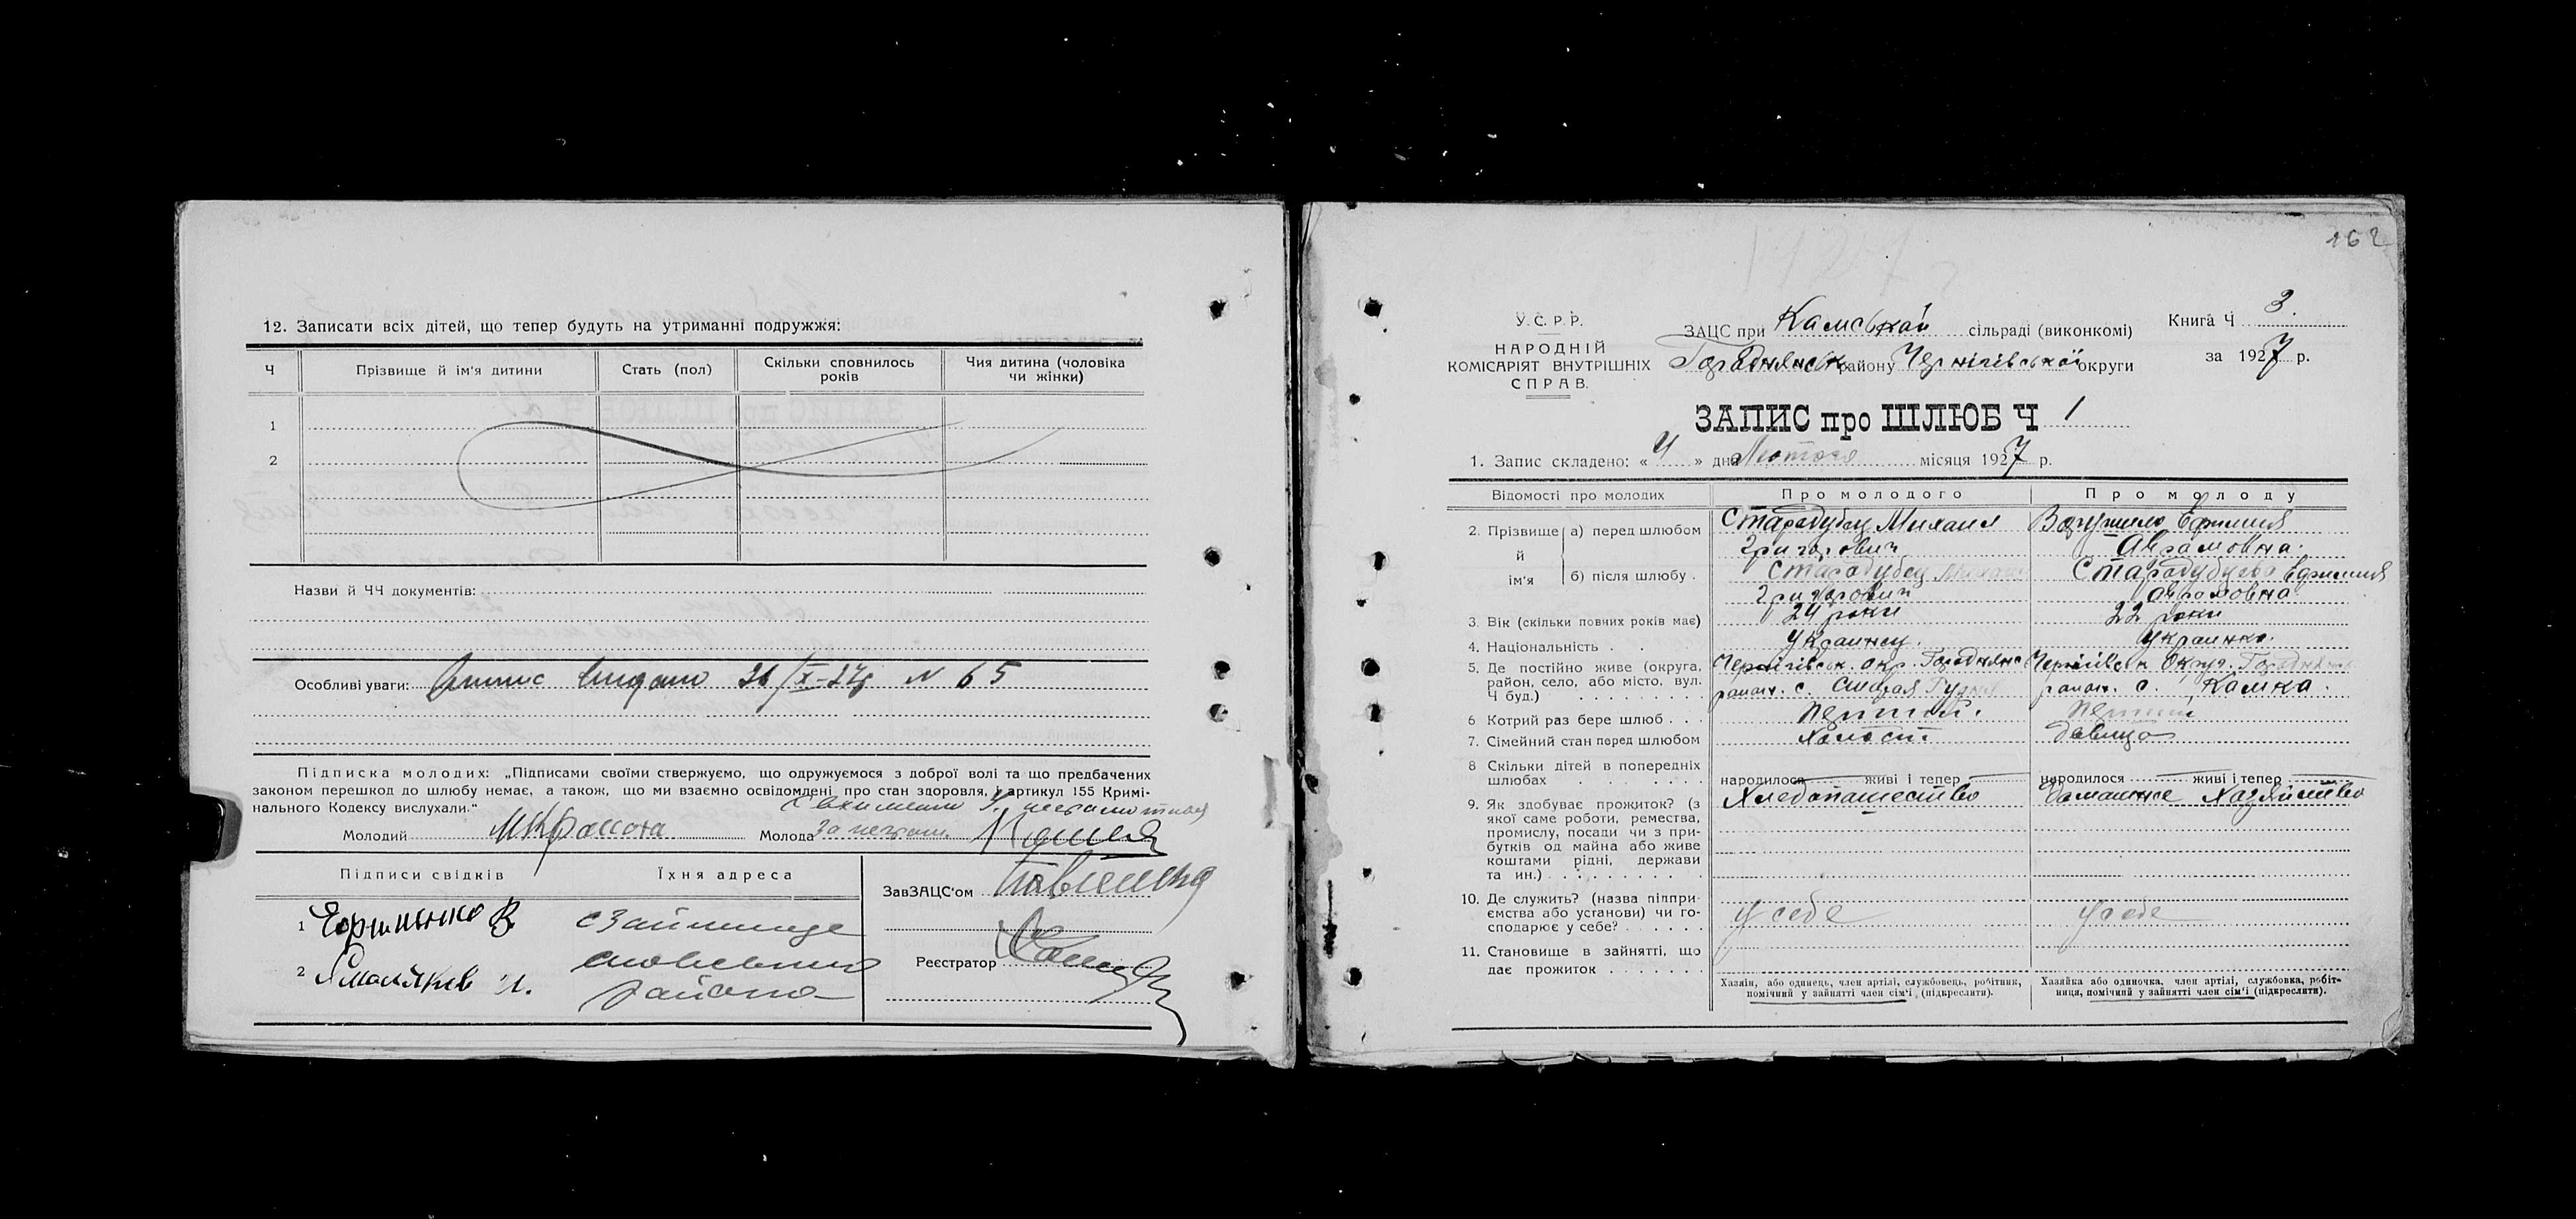 12. Записати всіх дітей, що тепер будуть на утриманні подружжя:
Ч
Прізвище й ім'я дитини
Стать (пол)
Скільки сповнилось років
Чия дитина (чоловіка чи жінки)
1
2
Назви й ЧЧ документів:
Особливі уваги: 26/X-27 N 65
Підписка молодих: „Підписами своїми стверджуємо, що одружуємося з доброї волі та що предбачених
законом перешкод до шлюбу немає, а також, що ми взаємно освідомлені про стан здоровля, і артикул 155 Кримі-
нального Кодексу вислухали."
Молодий
Молода
Підписи свідків
Їхня адреса
1 Ефименко В.
2
района
ЗавЗАЦС'ом
Реєстратор
162
У. С. Р. Р.
НАРОДНІЙ
КОМІСАРІЯТ ВНУТРІШНІХ
СПРАВ.
ЗАЦС при Камській сільраді (виконкомі)
Городнянськ району Чернігівської округи
Книга Ч 3.
за 1927 р.
ЗАПИС про ШЛЮБ Ч 1
1. Запис складено: « 4 » дня Лютого місяця 1927 р.
Відомості про молодих
Про молодого
Про молоду
2. Прізвище й ім'я
а) перед шлюбом
Стародубец Михаил
Григорович
Ефимия
Аврамовна.
б) після шлюбу.
Стародубец Михаил
Григорович
Стародубцева Ефимия
Аврамовна
3. Вік (скільки повних років має)
24 роки
22 роки
4. Національність . .
Украинец.
Украинка.
5. Де постійно живе (округа,
район, село, або місто, вул.
Ч буд.)
Чернігівськ. окр. Городнянс
район. с. Старая Рудня
Чернігівськ Окру. Городнянс
район. с. Камка.
6 Котрий раз бере шлюб . . .
Перший.
Перший
7. Сімейний стан перед шлюбом
Холост.
Девица
8 Скільки дітей в попередніх
шлюбах
народилося живі і тепер
народилося живі і тепер
9. Як здобуває прожиток? (з
якої саме роботи, ремества,
промислу, посади чи з при-
бутків од майна або живе
коштами рідні, держави
та ин.)
Хлебопашество
Домашнее Хазяйство
10. Де служить? (назва підпри-
ємства або установи) чи го-
сподарює у себе?
у себе
у себе
11. Становище в зайнятті, що
дає прожиток
Хазяїн, або одинець, член артілі, службовець, робітник,
помічний у зайнятті член сім'ї (підкреслити).
Хазяйка або одиночка, член артілі, службовка, робіт-
ниця, помічний у зайнятті член сім'ї (підкреслити).